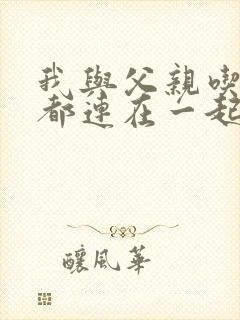 我與父親喫
都連在一起
釀風華